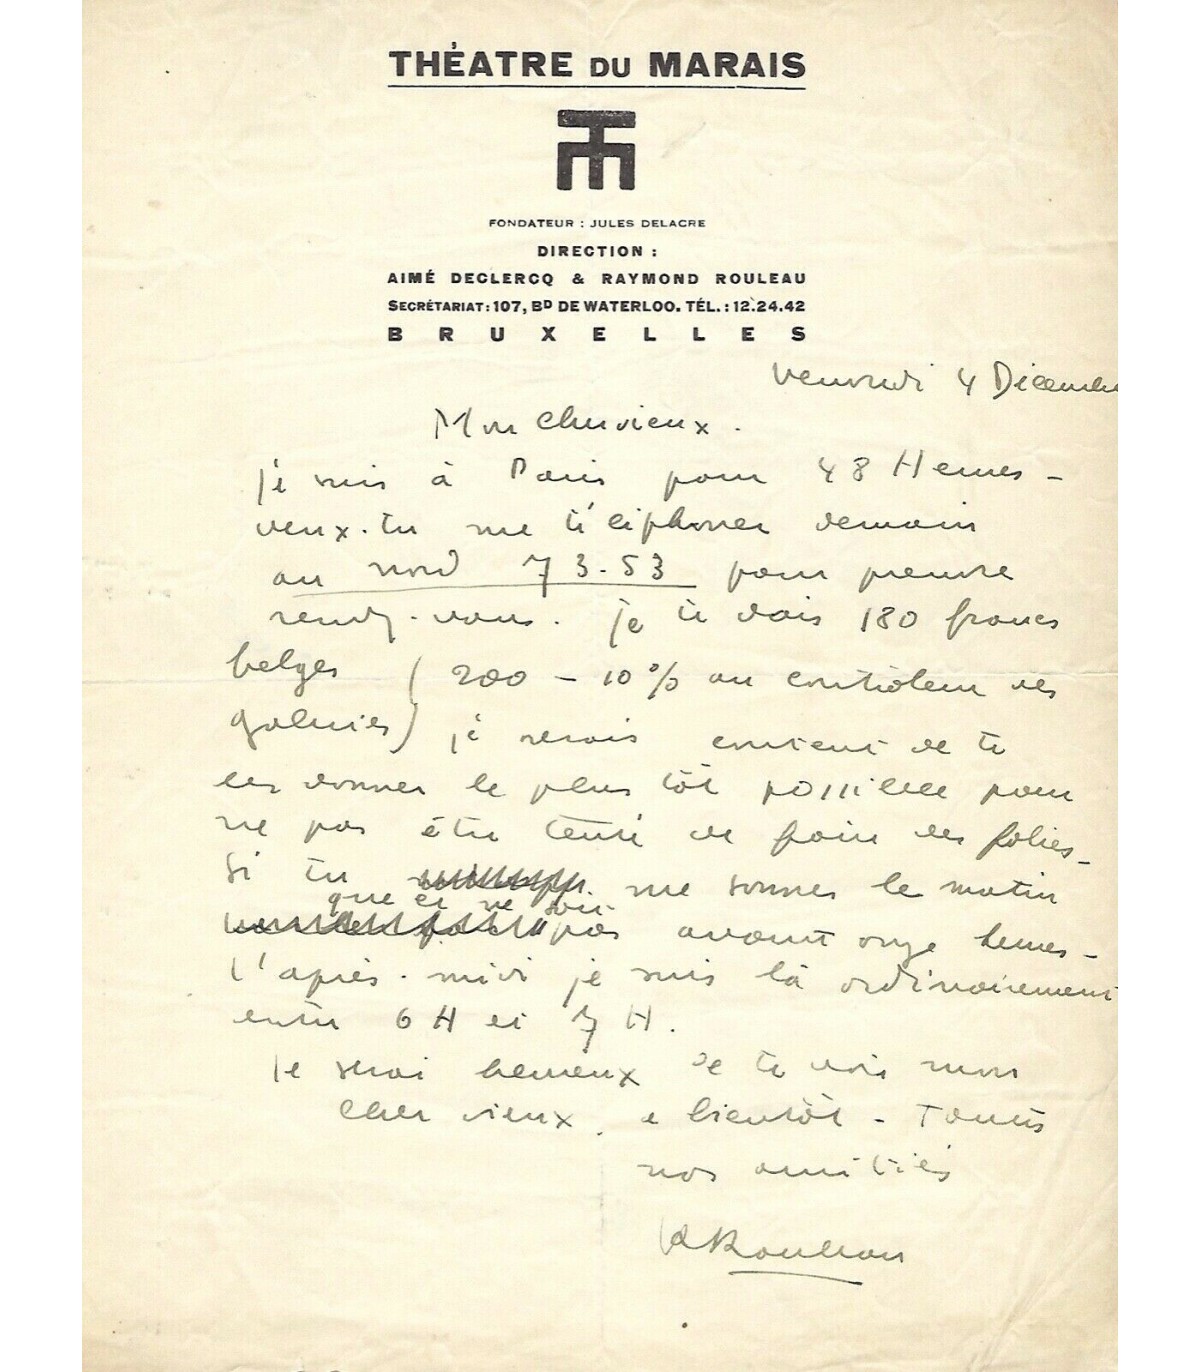 THÉATRE DU MARAIS
TM
FONDATEUR : JULES DELACRE
DIRECTION :
AIMÉ DECLERCQ & RAYMOND ROULEAU
SECRÉTARIAT: 107, BD DE WATERLOO. TÉL. : 12.24.42
BRUXELLES
Vendredi 4 Décembre
Mon cher vieux.
je suis à Paris pour 48 Heures -
veux-tu me téléphoner demain
au nord 73-53 pour prendre
rendez-vous. je te dois 180 francs
belges (200 - 10% au contrôleur des
galeries) je serais content de te
les donner le plus tôt possible pour
ne pas être tenté de faire des folies -
Si tu me sonnes le matin
que ce ne soit
pas avant onze heures -
l'après-midi je suis là ordinairement
entre 6H et 7H.
Je serai heureux de te voir mon
cher vieux. a bientôt - Toutes
nos amitiés
R Rouleau